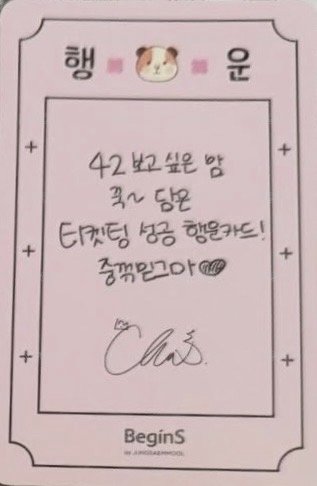 행 운
42 보고 싶은 맘
꾹~ 담은
티켓팅 성공 행운카드!
중꺾믿그마
BeginS